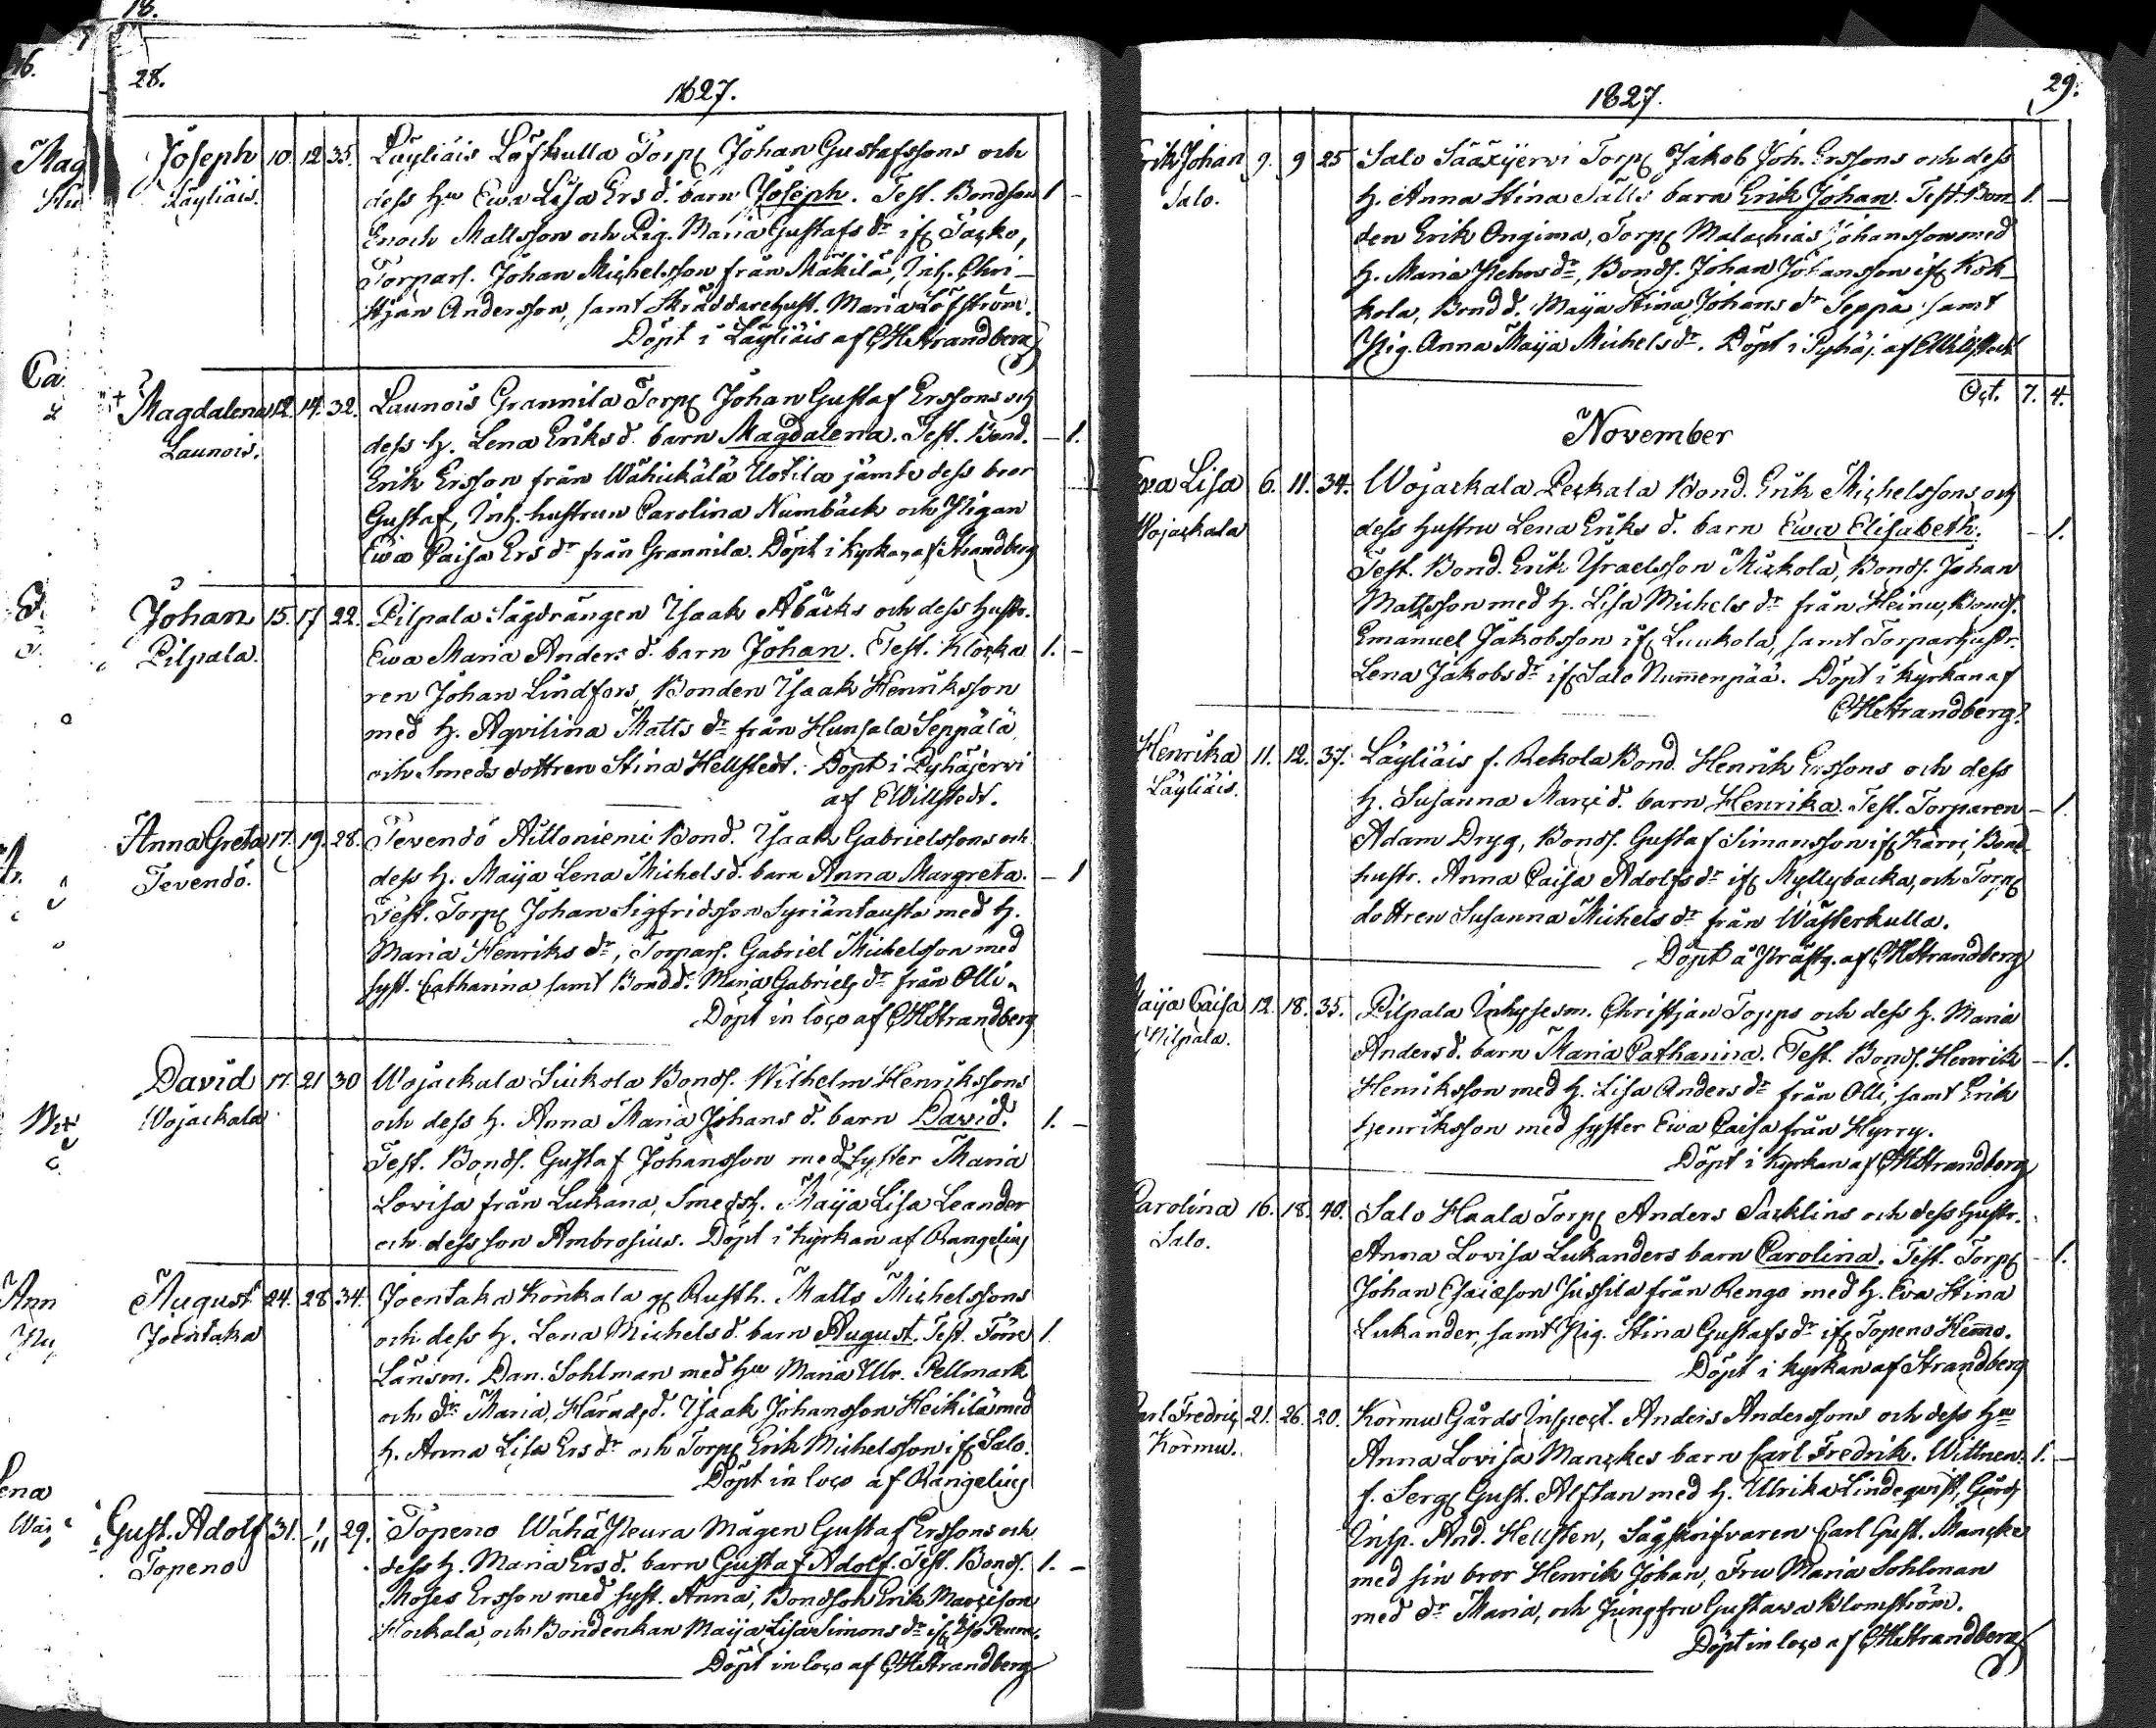 28.
1827.
Joseph 10. 12. 35. Läyliäis Löfkulla Torp. Johan Gustafssons och
Läyliäis. dess Hu Ewa Lisa Ers d. barn Joseph. Test. Bondson 1 -
Enoch Mattsson och Pig. Maria Gustafs dr if. Sacko,
Torpars. Johan Michelsson från Mäkilä, Inh. Chri-
stjan Andersson, samt Skräddarehust. Maria Löfström.
Döpt i Läyliäis af CHStrandberg
Magdalena 12. 14. 32. Launois Grannila Torp. Johan Gustaf Erssons och
Launois. dess H. Lena Eriks d. barn Magdalena. Test. Bond. - 1.
Erik Ersson från Wähickälä Uotila jämte dess bror
Gustaf, Inh. hustrun Carolina Numbäck och Pigan
Ewa Caisa Ers dr från Grannila. Döpt i Kyrkan af Strandberg
Johan 15. 17 22. Pilpala Sågdrängen Isaak Åbäcks och dess hustr.
Pilpala. Ewa Maria Anders d. barn Johan. Test. Klocka 1. -
ren Johan Lindfors, Bonden Isaak Henriksson
med H. Aqvilina Matts dr från Hunsala Seppälä
och Smeds dottren Stina Hellstedt. Döpt i Pyhäjervi
af EWillstedt.
Anna Greta 17. 19. 28. Tevendö Aittoniemi Bond. Isaak Gabrielssons och
Tevendö. dess H. Maija Lena Michels d. barn Anna Margreta. - 1
Test. Torp. Johan Sigfridsson Syriäntausta med H.
Maria Henriks dr, Torpars. Gabriel Michelsson med
syst. Catharina samt Bondd. Maria Gabriels dr från Olli.
Döpt in loco af CHStrandberg
David 17. 21 30 Wojackala Suckola Bonds. Wilhelm Henrikssons
Wojackala och dess H. Anna Maria Johans d. barn David. 1. -
Test. Bonds. Gustaf Johansson med syster Maria
Lovisa från Lukana, Smedsh. Maija Lisa Leander
och dess son Ambrosius. Döpt i Kyrkan af Rangelius
August 24. 28 34. Joentaka Konkala gl Rusth. Matts Michelssons
Joentaka och dess H. Lena Michels d. barn August. Test. Förre 1.
Länsm. Dan. Sohlman med Hu Maria Ulr. Pellmark
och dr Maria, Häradsd. Isaak Johansson Heikilä med
H. Anna Lisa Ers dr och Torp. Erik Michelsson if. Salo.
Döpt in loco af Rangelius
Gust. Adolf 31. 1/11 29. Topeno Wähä Pleura Mågen Gustaf Erssons och
Topeno dess H. Maria Ers d. barn Gustaf Adolf. Test. Bonds. 1. -
Moses Ersson med syst. Anna, Bondson Erik
Hockala, och Bondenkan Maija Lisa Simons dr if.
Döpt in loco af CHStrandberg
1827.
29.
Erik Johan 9. 9 25 Salo Sääxjervi Torp. Jakob Joh. Erssons och dess
Salo. H. Anna Stina Sälls barn Erik Johan. Test. Bon- 1. -
den Erik Ongima, Torp. Malachias Johansson med
H. Maria Stehns dr, Bonds. Johan Johansson if. Kok-
kola, Bondd. Maija Stina Johans dr Seppä samt
Pig. Anna Maija Michels dr. Döpt i Pyhäj. af EWillstedt
Oct. 7. 4.
November
Ewa Lisa 6. 11. 34. Wojackala Peckala Bond. Erik Michelssons och
Wojackala dess hustru Lena Eriks d. barn Ewa Elisabeth. - 1.
Test. Bond. Erik Israelsson Mickola, Bonds. Johan
Mattsson med H. Lisa Michels dr från Heinu, Bonds.
Emanuel Jakobsson if. Luukola, samt Torparhustr.
Lena Jakobs dr if. Salo Nummenpää. Döpt i Kyrkan af
CHStrandberg.
Henrika 11. 12. 37. Läyliäis f. Rekola Bond. Henrik Erssons och dess
Läyliäis. H. Susanna Marci d. barn Henrika. Test. Torparen - 1.
Adam Dryg, Bonds. Gustaf Simonsson if. Karri, Bond-
hustr. Anna Caisa Adolfs dr if. Myllybacka, och Torp.
dottren Susanna Michels dr från Wästerkulla.
Döpt å Prästg. af CHStrandberg
Maija Caisa 12. 18. 35. Pilpala Inhysesm. Christjan Topps och dess H. Maria
Pilpala. Anders d. barn Maria Catharina. Test. Bonds. Henrik - 1.
Henriksson med H. Lisa Anders dr från Olli, samt Erik
Henriksson med syster Ewa Caisa från Hyrry.
Döpt i Kyrkan af CHStrandberg
Carolina 16. 18. 40. Salo Haala Torp. Anders Sacklins och dess hustr.
Salo. Anna Lovisa Lukanders barn Carolina. Test. Torp. - 1.
Johan Esaiæson Jussila från Rengo med H. Eva Stina
Lukander, samt Pig. Stina Gustafs dr if. Topeno Hemmo.
Döpt i Kyrkan af Strandberg
Carl Fredric 21. 26. 20. Kormu Gårds Inspect. Anders Anderssons och dess Hu
Kormu. Anna Lovisa Manckes barn Carl Fredrik. Wittnen. 1. -
f. Serg. Gust. Alftan med H. Ulrika Lindeqvist, Gårds
Insp. And. Hellsten, Sågskrifvaren Carl Gust. Mancke
med sin bror Henrik Johan, Fru Maria Sohlman
med dr Maria, och Jungfru Gustava Blomström.
Döpt in loco af CHStrandberg